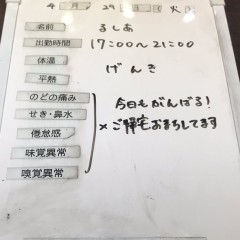 4月 29日 火
名前 るしあ
出勤時間 17:00〜21:00
体温
平熱 げんき
のどの痛み
せき・鼻水 今日もがんばる!
倦怠感 ×ご帰宅おまちしてます
味覚異常
嗅覚異常